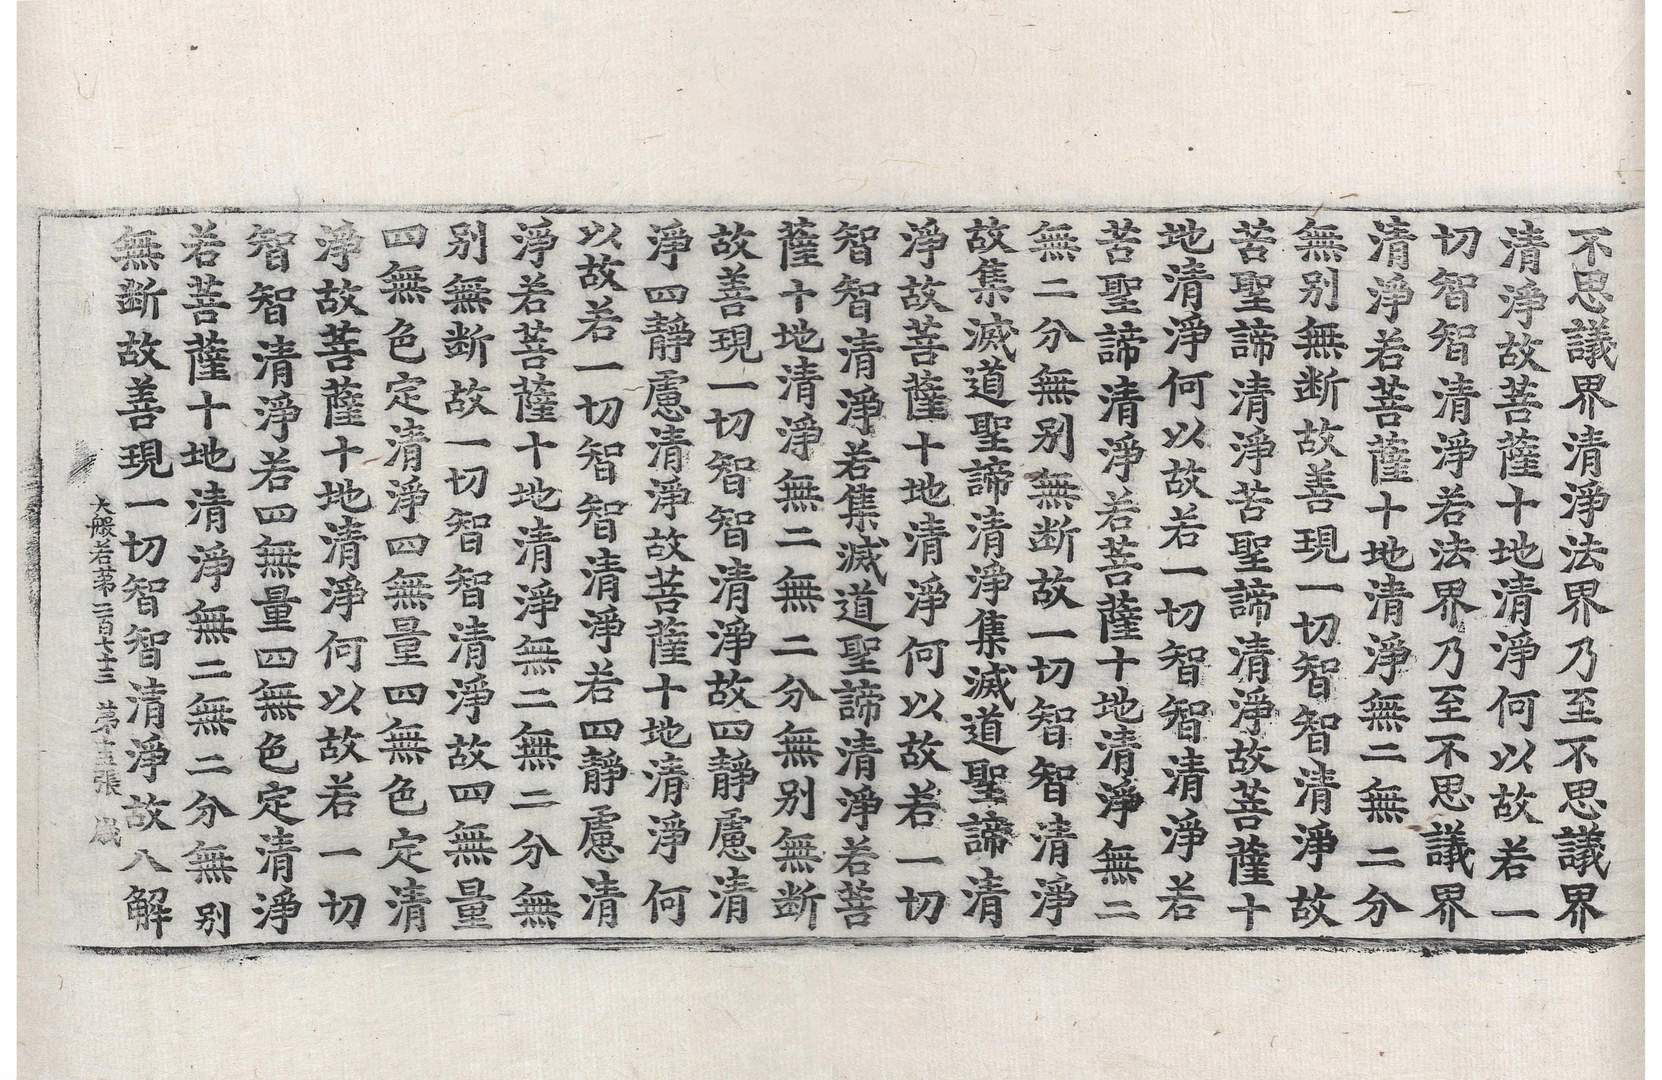 不思議界清淨法界乃至不思議界
清淨故菩薩十地清淨何以故若一
切智智清淨若法界乃至不思議界
清淨若菩薩十地清淨無二無二分
無別無断故善現一切智智清淨故
苦聖諦清淨苦聖諦清淨故菩薩十
地清淨何以故若一切智智清淨若
苦聖諦清淨若菩薩十地清淨無二
無二分無別無断故一切智智清淨
故集滅道聖諦清淨集滅道聖諦清
淨故菩薩十地清淨何以故若一切
智智清淨若集滅道聖諦清淨若菩
薩十地清淨無二無二分無別無断
故善現一切智智清淨故四靜慮清
淨四靜慮清淨故菩薩十地清淨何
以故若一切智智清淨若四靜慮清
淨若菩薩十地清淨無二無二分無
別無断故一切智智清淨故四無量
四無色定清淨四無量四無色定清
淨故菩薩十地清淨何以故若一切
智智清淨若四無量四無色定清淨
若菩薩十地清淨無二無二分無別
無断故善現一切智智清淨故八解
大般若第二百七十三 第十五張 歲